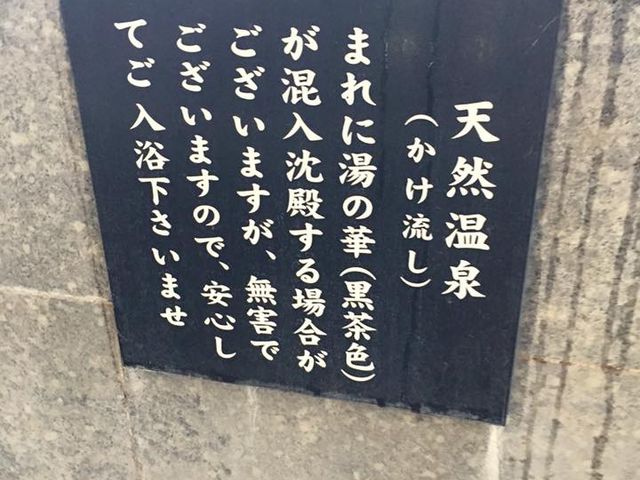 天然温泉
(かけ流し)
まれに湯の華(黒茶色)
が混入沈殿する場合が
ございますが、無害で
ございますので、安心し
てご入浴下さいませ